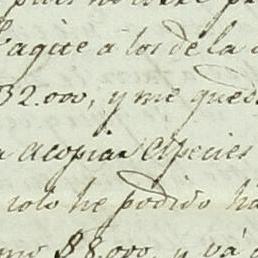 agite á los de la
32.000, y me qued
acopiar especies
solo he podido ha
$8,000, y vá